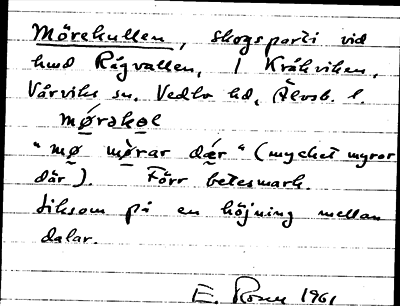 Mörekullen, skogsparti vid
hmd Rågvallen, i Kråkviken,
Vårviks sn. Vedbo hd, Älvsb. l.
mǿrəkəl
"mø mø̀rar dǽr" (mycket myror
där). Förr betesmark.
Liksom på en höjning mellan
dalar.
E. Rosen 1961